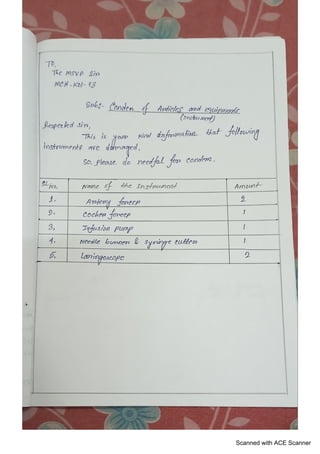 TO,
The MSVP Sir
MCH-Kol-73
Sub:- Conden of Articles and
(Instrument)
Respected Sir,
This is your kind Information that following
Instruments are damaged.
So, Please do needful for condem.
Sl No. Name of the Instrument Amount
1. Artery forcep 2
2. Cocher forcep 1
3, Infusion pump 1
4. Needle burner & syringe cutter 1
5, Laringoscope 2
Scanned with ACE Scanner